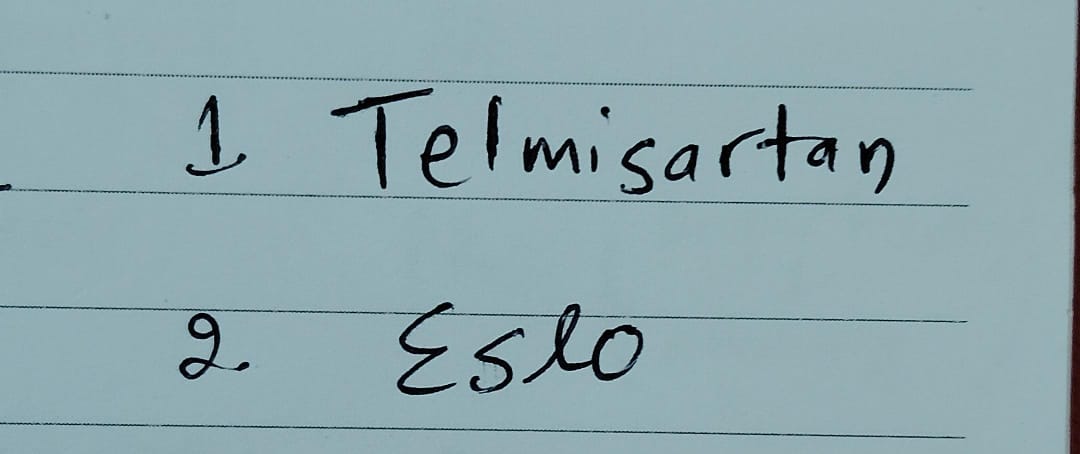 1 Telmisartan
2 Eslo